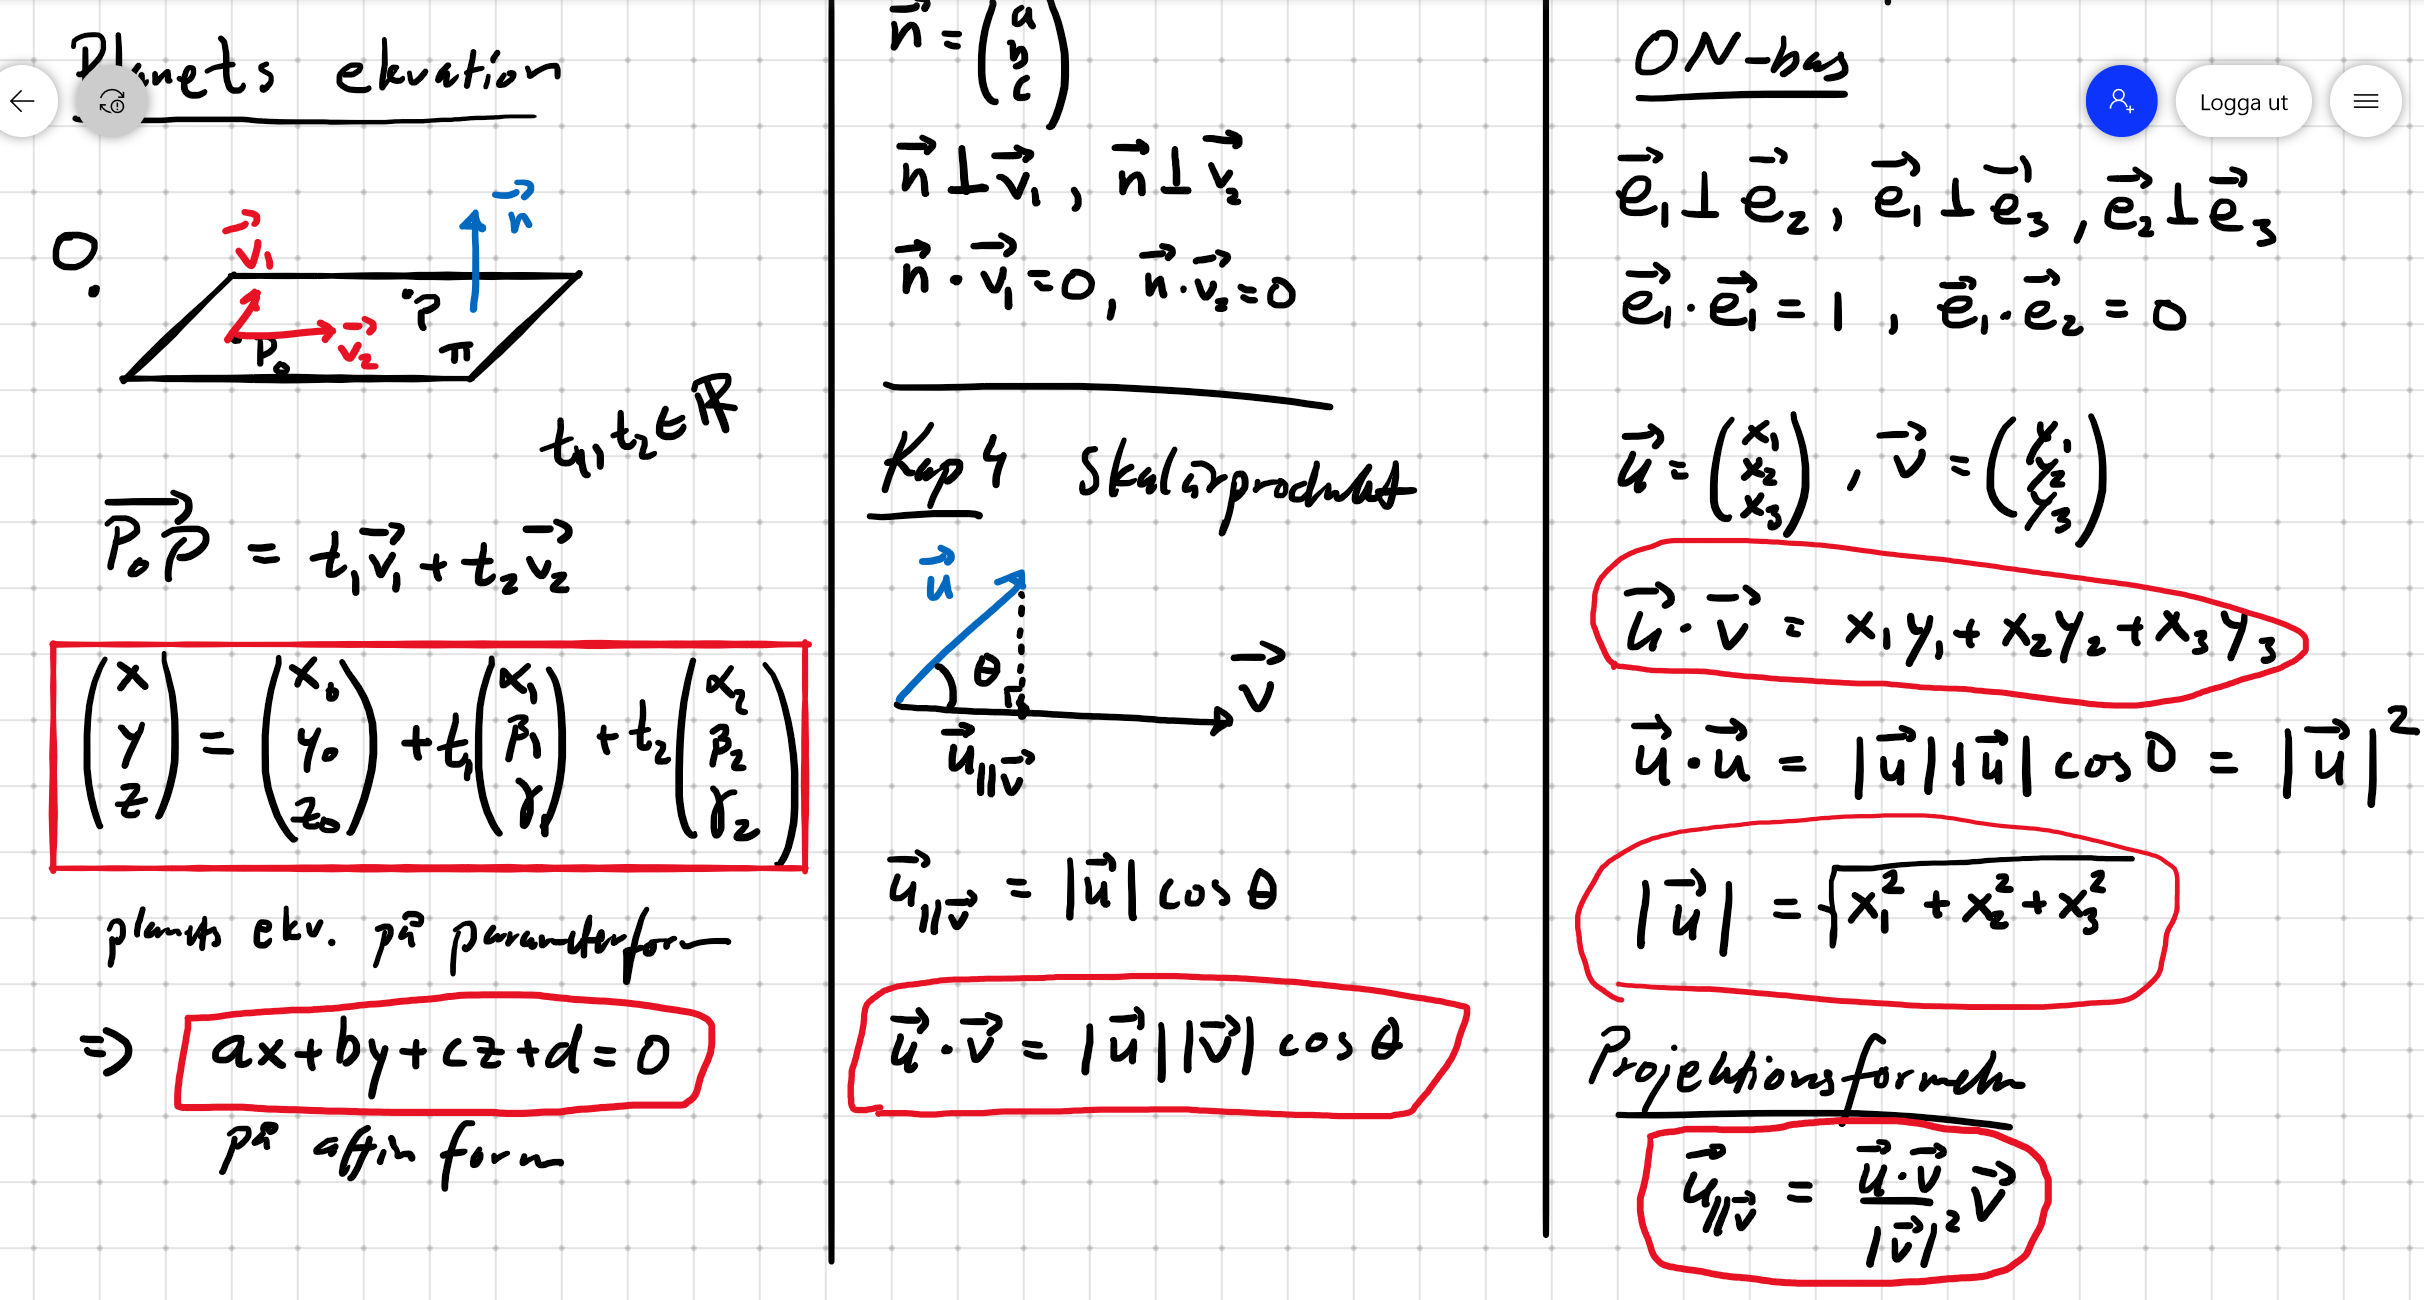 Planets ekvation
O
v⃗₁
n⃗
P
P₀
v⃗₂
π
t₁, t₂ ∈ ℝ
P₀P⃗ = t₁v⃗₁ + t₂v⃗₂
(x y z) = (x₀ y₀ z₀) + t₁(α₁ β₁ γ₁) + t₂(α₂ β₂ γ₂)
planets ekv. på parameterform
⇒ ax+by+cz+d=0
på affin form
n⃗ = (a b c)
n⃗ ⊥ v⃗₁, n⃗ ⊥ v⃗₂
n⃗ · v⃗₁ = 0, n⃗ · v⃗₂ = 0
Kap 4 Skalärprodukt
u⃗
θ
v⃗
u⃗∥v⃗
u⃗∥v⃗ = |u⃗| cos θ
u⃗ · v⃗ = |u⃗||v⃗| cos θ
ON-bas
Logga ut
e⃗₁ ⊥ e⃗₂, e⃗₁ ⊥ e⃗₃, e⃗₂ ⊥ e⃗₃
e⃗₁ · e⃗₁ = 1, e⃗₁ · e⃗₂ = 0
u⃗ = (x₁ x₂ x₃), v⃗ = (y₁ y₂ y₃)
u⃗ · v⃗ = x₁y₁ + x₂y₂ + x₃y₃
u⃗ · u⃗ = |u⃗||u⃗| cos 0 = |u⃗|²
|u⃗| = √(x₁² + x₂² + x₃²)
Projektionsformeln
u⃗∥v⃗ = (u⃗ · v⃗)/|v⃗|² v⃗